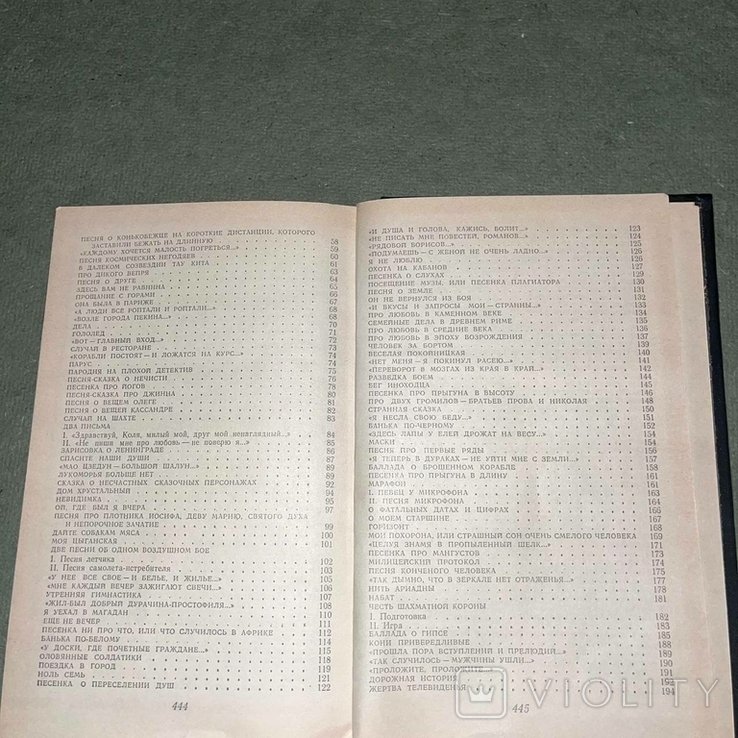 ПЕСНЯ О КОНЬКОБЕЖЦЕ НА КОРОТКИЕ ДИСТАНЦИИ, КОТОРОГО
ЗАСТАВИЛИ БЕЖАТЬ НА ДЛИННУЮ 58
«КАЖДОМУ ХОЧЕТСЯ МАЛОСТЬ ПОГРЕТЬСЯ...» 59
ПЕСНЯ КОСМИЧЕСКИХ НЕГОДЯЕВ 60
В ДАЛЕКОМ СОЗВЕЗДИИ ТАУ КИТА 61
ПРО ДИКОГО ВЕПРЯ 63
ПЕСНЯ О ДРУГЕ 64
ЗДЕСЬ ВАМ НЕ РАВНИНА 65
ПРОЩАНИЕ С ГОРАМИ 66
ОНА БЫЛА В ПАРИЖЕ 67
«А ЛЮДИ ВСЕ РОПТАЛИ И РОПТАЛИ...» 68
«ВОЗЛЕ ГОРОДА ПЕКИНА...» 68
ДЕЛА 70
ГОЛОЛЕД 71
«ВОТ — ГЛАВНЫЙ ВХОД...» 72
СЛУЧАЙ В РЕСТОРАНЕ 73
«КОРАБЛИ ПОСТОЯТ — И ЛОЖАТСЯ НА КУРС...» 74
ПАРУС 74
ПАРОДИЯ НА ПЛОХОЙ ДЕТЕКТИВ 75
ПЕСНЯ-СКАЗКА О НЕЧИСТИ 76
ПЕСЕНКА ПРО ЙОГОВ 78
ПЕСНЯ-СКАЗКА ПРО ДЖИННА 79
ПЕСНЯ О ВЕЩЕМ ОЛЕГЕ 80
ПЕСНЯ О ВЕЩЕЙ КАССАНДРЕ 81
СЛУЧАЙ НА ШАХТЕ 82
ДВА ПИСЬМА 83
I. «Здравствуй, Коля, милый мой, друг мой ненаглядный...» 84
II. «Не пиши мне про любовь — не поверю я...» 85
ЗАРИСОВКА О ЛЕНИНГРАДЕ 86
СПАСИТЕ НАШИ ДУШИ 87
«МАО ЦЗЕДУН — БОЛЬШОЙ ШАЛУН...» 88
ЛУКОМОРЬЯ БОЛЬШЕ НЕТ 90
СКАЗКА О НЕСЧАСТНЫХ СКАЗОЧНЫХ ПЕРСОНАЖАХ 92
ДОМ ХРУСТАЛЬНЫЙ 94
НЕВИДИМКА 95
ОЙ, ГДЕ БЫЛ Я ВЧЕРА 97
ПЕСНЯ ПРО ПЛОТНИКА ИОСИФА, ДЕВУ МАРИЮ, СВЯТОГО ДУХА
И НЕПОРОЧНОЕ ЗАЧАТИЕ 99
ДАЙТЕ СОБАКАМ МЯСА 100
МОЯ ЦЫГАНСКАЯ 101
ДВЕ ПЕСНИ ОБ ОДНОМ ВОЗДУШНОМ БОЕ
I. Песня летчика 102
II. Песня самолета-истребителя 103
«У НЕЕ ВСЕ СВОЕ — И БЕЛЬЕ, И ЖИЛЬЕ...» 105
«МНЕ КАЖДЫЙ ВЕЧЕР ЗАЖИГАЮТ СВЕЧИ...» 106
УТРЕННЯЯ ГИМНАСТИКА 107
«ЖИЛ-БЫЛ ДОБРЫЙ ДУРАЧИНА-ПРОСТОФИЛЯ...» 108
Я УЕХАЛ В МАГАДАН 110
ЕЩЕ НЕ ВЕЧЕР 111
ПЕСЕНКА НИ ПРО ЧТО, ИЛИ ЧТО СЛУЧИЛОСЬ В АФРИКЕ 112
БАНЬКА ПО-БЕЛОМУ 114
«У ДОСКИ, ГДЕ ПОЧЕТНЫЕ ГРАЖДАНЕ...» 115
ОЛОВЯННЫЕ СОЛДАТИКИ 118
ПОЕЗДКА В ГОРОД 119
НОЛЬ СЕМЬ 121
ПЕСЕНКА О ПЕРЕСЕЛЕНИИ ДУШ 122
444
«И ДУША И ГОЛОВА, КАЖИСЬ, БОЛИТ...» 123
«НЕ ПИСАТЬ МНЕ ПОВЕСТЕЙ, РОМАНОВ...» 124
«РЯДОВОЙ БОРИСОВ...» 125
«ПОДУМАЕШЬ — С ЖЕНОЙ НЕ ОЧЕНЬ ЛАДНО...» 125
Я НЕ ЛЮБЛЮ 126
ОХОТА НА КАБАНОВ 127
ПЕСЕНКА О СЛУХАХ 128
ПОСЕЩЕНИЕ МУЗЫ, ИЛИ ПЕСЕНКА ПЛАГИАТОРА 129
ПЕСНЯ О ЗЕМЛЕ 130
ОН НЕ ВЕРНУЛСЯ ИЗ БОЯ 131
«И ВКУСЫ И ЗАПРОСЫ МОИ — СТРАННЫ...» 133
ПРО ЛЮБОВЬ В КАМЕННОМ ВЕКЕ 134
СЕМЕЙНЫЕ ДЕЛА В ДРЕВНЕМ РИМЕ 135
ПРО ЛЮБОВЬ В СРЕДНИЕ ВЕКА 136
ПРО ЛЮБОВЬ В ЭПОХУ ВОЗРОЖДЕНИЯ 137
ЧЕЛОВЕК ЗА БОРТОМ 139
ВЕСЕЛАЯ ПОКОЙНИЦКАЯ 140
«НЕТ МЕНЯ — Я ПОКИНУЛ РАСЕЮ...» 141
«ПЕРЕВОРОТ В МОЗГАХ ИЗ КРАЯ В КРАЙ...» 142
РАЗВЕДКА БОЕМ 144
БЕГ ИНОХОДЦА 145
ПЕСЕНКА ПРО ПРЫГУНА В ВЫСОТУ 146
ПРО ДВУХ ГРОМИЛОВ — БРАТЬЕВ ПРОВА И НИКОЛАЯ 148
СТРАННАЯ СКАЗКА 150
«Я НЕСЛА СВОЮ БЕДУ...» 151
БАНЬКА ПО-ЧЕРНОМУ 152
«ЗДЕСЬ ЛАПЫ У ЕЛЕЙ ДРОЖАТ НА ВЕСУ...» 153
МАСКИ 154
ПЕСНЯ ПРО ПЕРВЫЕ РЯДЫ 155
«Я ТЕПЕРЬ В ДУРАКАХ — НЕ УЙТИ МНЕ С ЗЕМЛИ...» 157
БАЛЛАДА О БРОШЕННОМ КОРАБЛЕ 158
ПЕСЕНКА ПРО ПРЫГУНА В ДЛИНУ 160
МАРАФОН 161
I. ПЕВЕЦ У МИКРОФОНА 163
II. ПЕСНЯ МИКРОФОНА 164
О ФАТАЛЬНЫХ ДАТАХ И ЦИФРАХ 166
О МОЕМ СТАРШИНЕ 167
ГОРИЗОНТ 168
МОИ ПОХОРОНА, ИЛИ СТРАШНЫЙ СОН ОЧЕНЬ СМЕЛОГО ЧЕЛОВЕКА 169
«ЦЕЛУЯ ЗНАМЯ В ПРОПЫЛЕННЫЙ ШЕЛК...» 171
ПЕСЕНКА ПРО МАНГУСТОВ 173
МИЛИЦЕЙСКИЙ ПРОТОКОЛ 174
ПЕСНЯ КОНЧЕНОГО ЧЕЛОВЕКА 175
«ТАК ДЫМНО, ЧТО В ЗЕРКАЛЕ НЕТ ОТРАЖЕНЬЯ...» 177
НИТЬ АРИАДНЫ 178
НАБАТ 181
ЧЕСТЬ ШАХМАТНОЙ КОРОНЫ
I. Подготовка 182
II. Игра 183
БАЛЛАДА О ГИПСЕ 187
КОНИ ПРИВЕРЕДЛИВЫЕ 188
«ПРОШЛА ПОРА ВСТУПЛЕНИЙ И ПРЕЛЮДИЙ...» 189
«ТАК СЛУЧИЛОСЬ — МУЖЧИНЫ УШЛИ...» 190
«ПРОЛОЖИТЕ, ПРОЛОЖИТЕ...» 191
ДОРОЖНАЯ ИСТОРИЯ 192
ЖЕРТВА ТЕЛЕВИДЕНЬЯ 194
445
VIOLITY